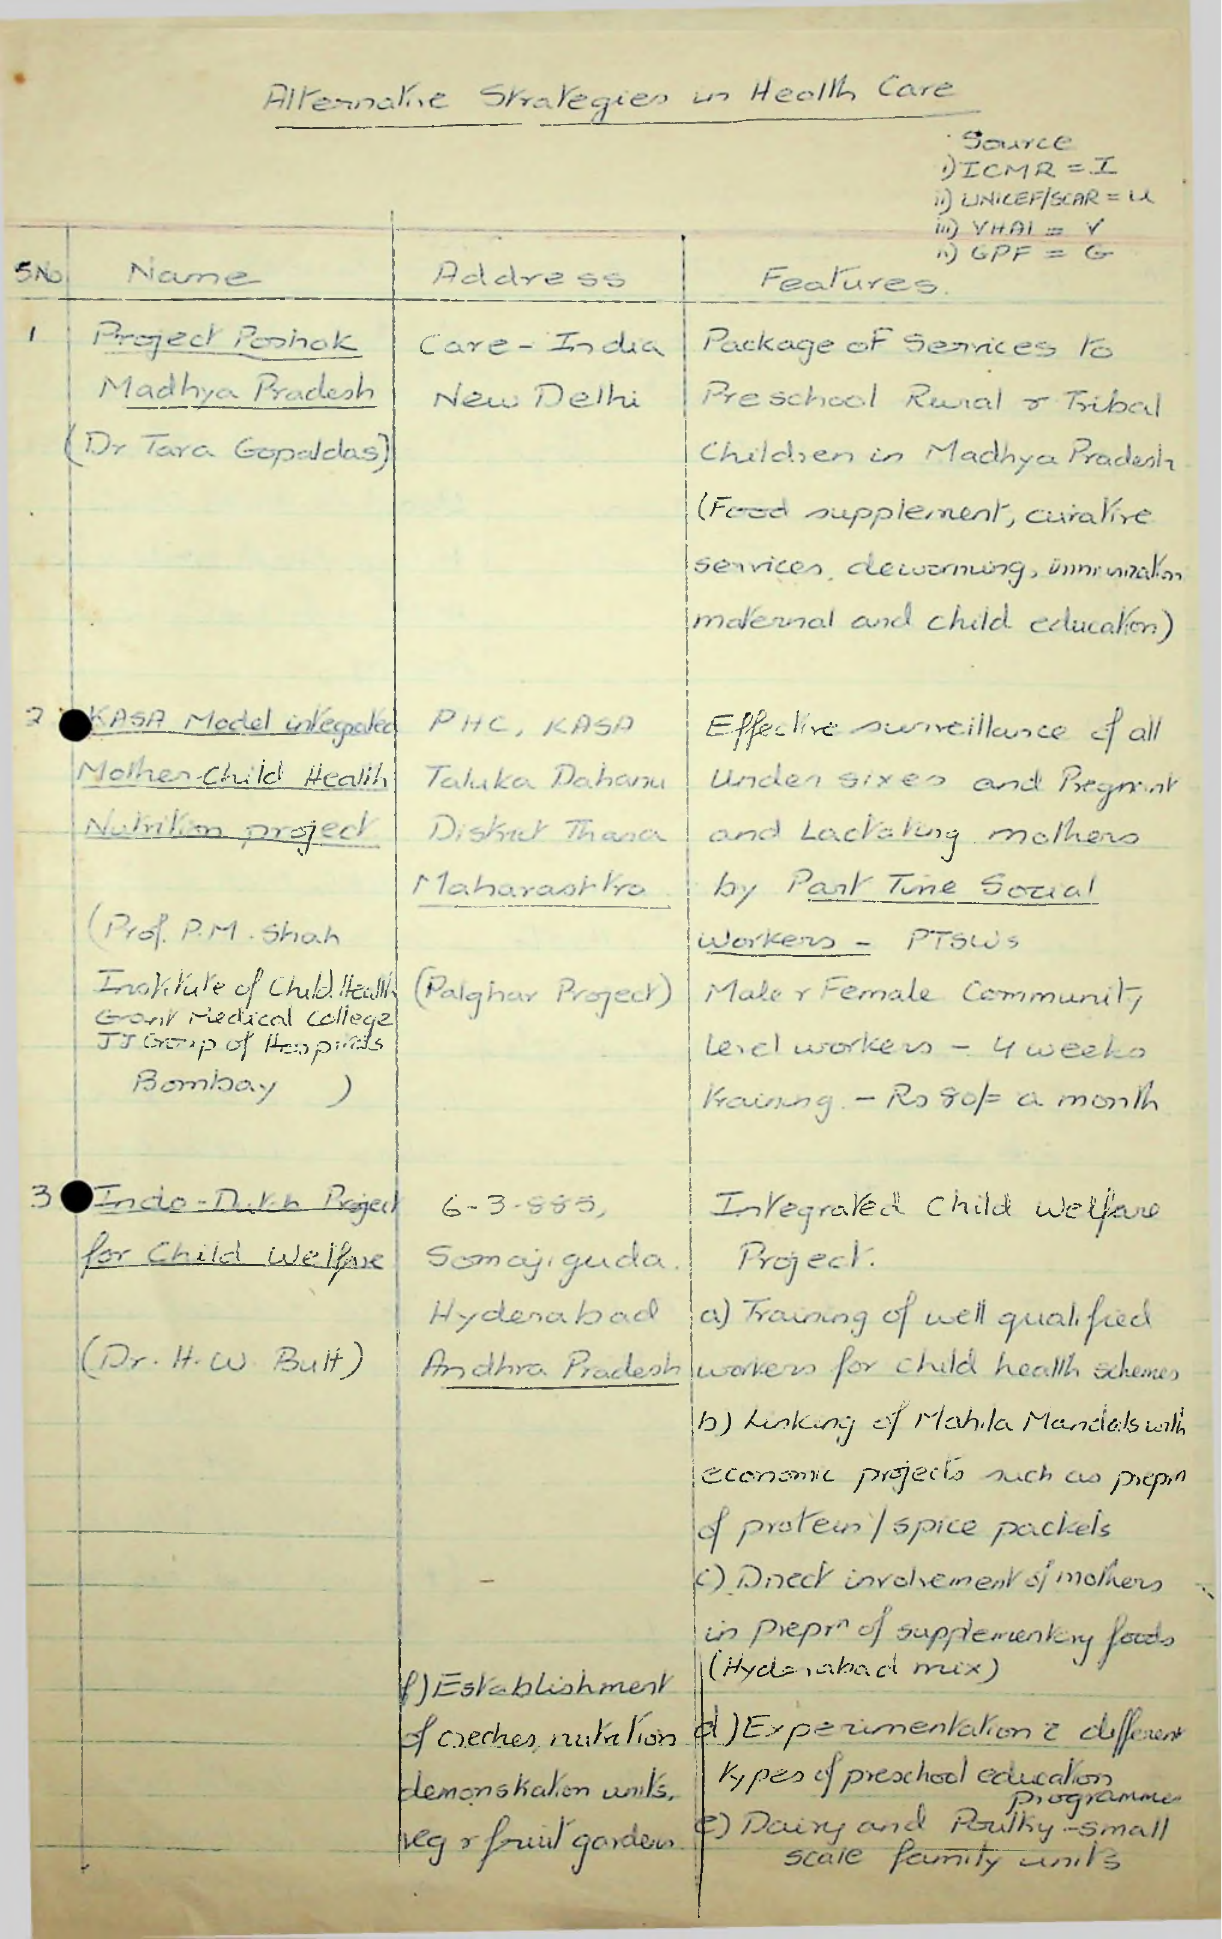 Alternative Strategies in Health Care
Source
i) ICMR = I
ii) UNICEF/SCAR = U
iii) VHAI = V
iv) GPF = G
SNo
Name
Address
Features.
1
Project Poshak
Madhya Pradesh
(Dr Tara Gopaldas)
Care - India
New Delhi
Package of Services to
Preschool Rural & Tribal
Children in Madhya Pradesh
(Food supplement, curative
services, deworming, immunization
maternal and child education)
2
KASA Model integrated
Mother-Child Health
Nutrition project
(Prof. P.M. Shah
Institute of Child Health
Grant Medical College
JJ Group of Hospitals
Bombay )
PHC, KASA
Taluka Dahanu
District Thana
Maharashtra
(Palghar Project)
Effective surveillance of all
Under sixes and Pregnant
and Lactating mothers
by Part Time Social
Workers - PTSWs
Male & Female Community
Level workers - 4 weeks
training. - Rs 80/= a month
3
Indo-Dutch Project
for Child Welfare
(Dr. H. W. Butt)
6-3-885,
Somajiguda.
Hyderabad
Andhra Pradesh
Integrated Child Welfare
Project.
a) Training of well qualified
workers for child health schemes
b) Linking of Mahila Mandals with
economic projects such as prepn
of protein/spice packets
c) Direct involvement of mothers
in preprn of supplementary foods
(Hyderabad mix)
d) Experimentation c different
types of preschool education
programmes
e) Dairy and Poultry - small
scale family units
f) Establishment
of creches, nutrition
demonstration units.
veg & fruit gardens